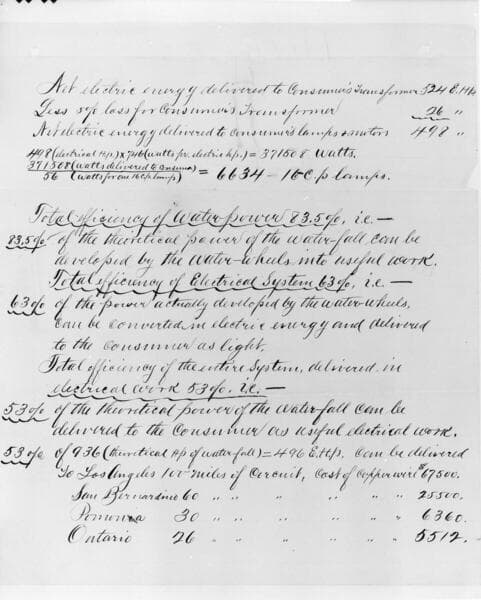 Net electric energy delivered to Consumer's Transformer 524 E.Hp.
Less 5% loss for Consumer's Transformer 26 "
Net electric energy delivered to Consumer's lamps & motors 498 "
498 (electrical Hp.) x 746 (watts per electric hp.) = 371508 Watts.
371508 (watts delivered to Consumer) / 56 (watts for one 16 C.p. lamp) = 6634 – 16 C.p lamps.
Total efficiency of Water power 83.5%, i.e. —
83.5% of the theoretical power of the water-fall can be
developed by the water-wheels into useful work.
Total efficiency of Electrical System 63%, i.e. —
63% of the power actually developed by the water-wheels,
can be converted in electric energy and delivered
to the consumer as light.
Total efficiency of the entire System, delivered in
electrical work 53%, i.e. —
53% of the theoretical power of the waterfall can be
delivered to the Consumer as useful electrical work.
53% of 936 (theoretical Hp of waterfall) = 496 E.Hp. Can be delivered
To Los Angeles 100 miles of Circuit, Cost of Copper wire $67500.
San Bernardino 60 " " " " " " 25500.
Pomona 30 " " " " " " 6360.
Ontario 26 " " " " " " 5512.